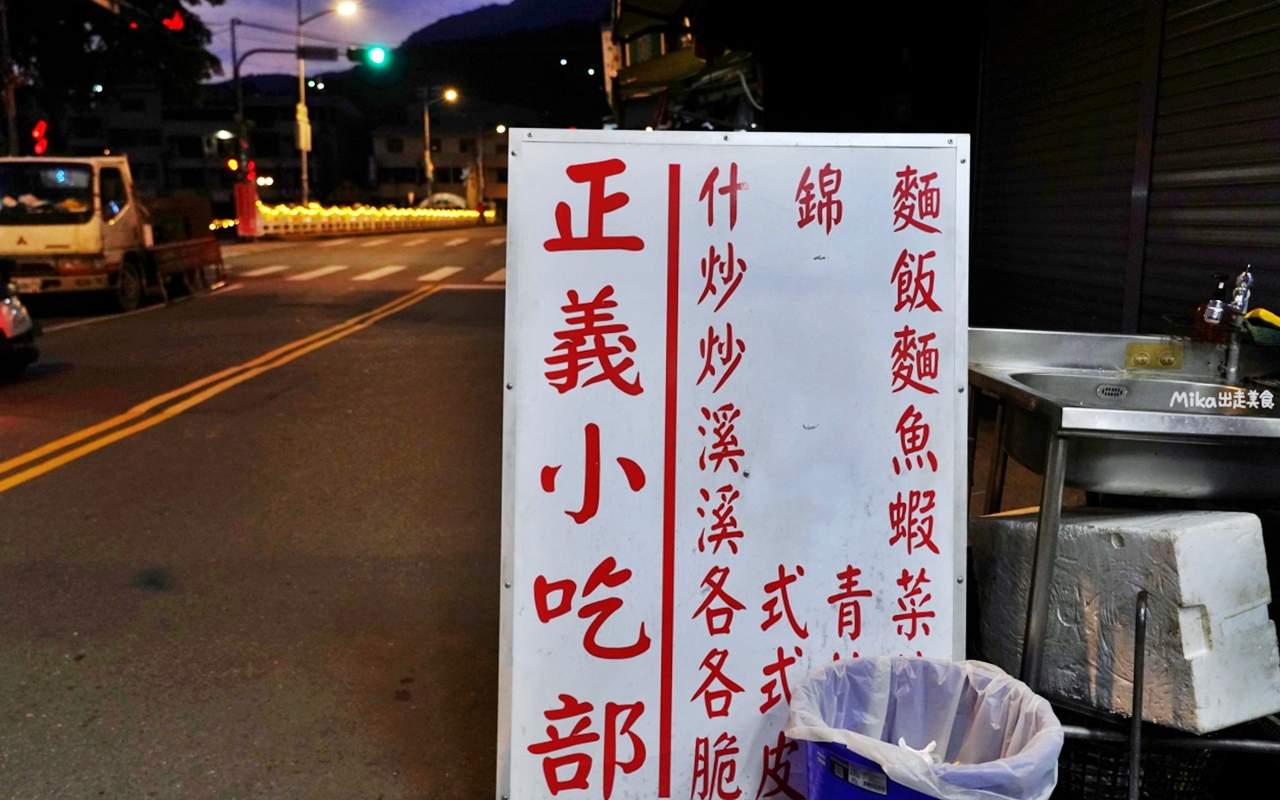 正義小吃部
什錦麵
炒飯
炒麵
溪魚
溪蝦
各式青菜
各式
脆皮
Mika出走美食